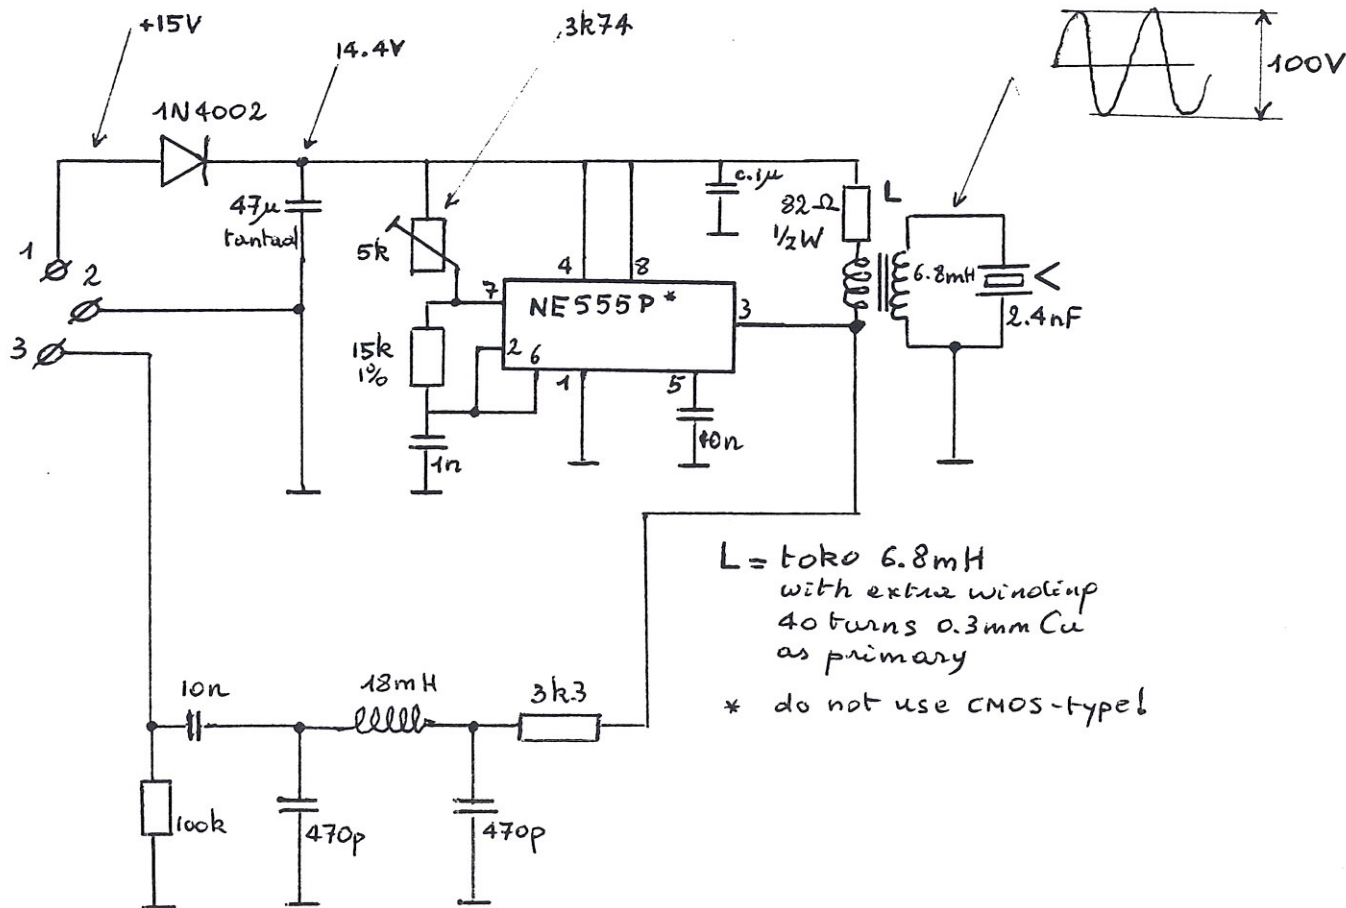 +15V
14.4V
3k74
100V
1N4002
47µ
tantaal
5k
0.1µ
82Ω
½W
L
1
2
3
4
8
7
NE555P*
3
6.8mH
2.4nF
15k
1%
2
6
1
5
1n
10n
L = toko 6.8mH
with extra winding
40 turns 0.3mm Cu
as primary
* do not use CMOS-type!
10n
18mH
3k3
100k
470p
470p